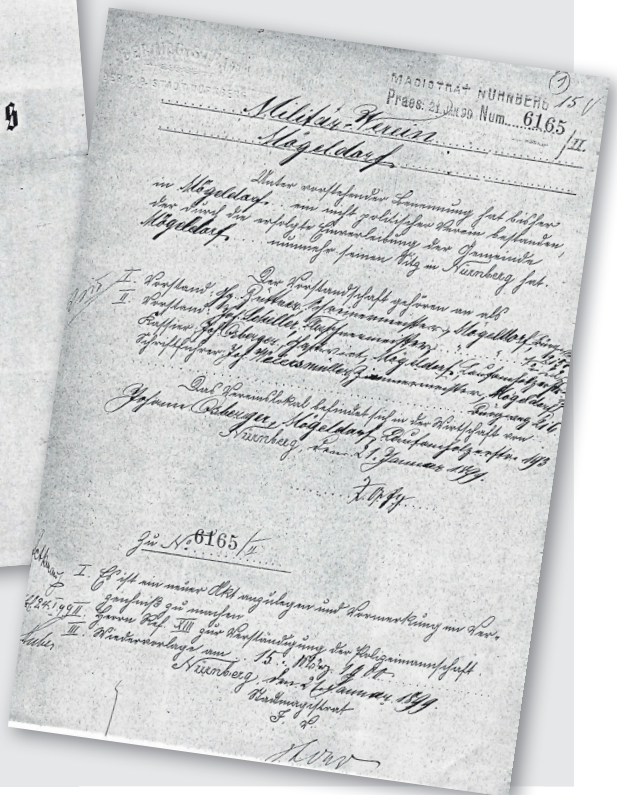 ß
MAGISTRAT NÜRNBERG
Praes. 21. JAN. 99 Num. 6165/II.
1
15
Militär-Verein
Mögeldorf.
Unter vorstehender Benennung hat bisher
in Mögeldorf ein nicht politischer Verein bestanden,
der durch die erfolgte Einverleibung der Gemeinde
Mögeldorf nunmehr seinen Sitz in Nürnberg hat.
Der Vorstandschaft gehören an als
I. Vorstand: Büttner, Schreinermeister, Mögeldorf,
II. Vorstand: Joh. Schuller, Flaschnermeister,
Kassier: Joh. Osberger, Gastwirt, Mögeldorf, Laufamholzerstr.
Schriftführer: Joh. Zimmermeister, Mögeldorf,
Das Vereinslokal befindet sich in der Wirtschaft von
Johann Osberger, Mögeldorf, Laufamholzerstr. 193
Nürnberg, den 21. Januar 1899.
Zu No. 6165/II
I. Es ist ein neuer Akt anzulegen und Vormerkung im Ver-
zeichniß zu machen
II. Herrn Ref. XIII zur Verständigung der Polizeimannschaft
III. Wiedervorlage am 15. März
Nürnberg, den Januar 1899.
Stadtmagistrat